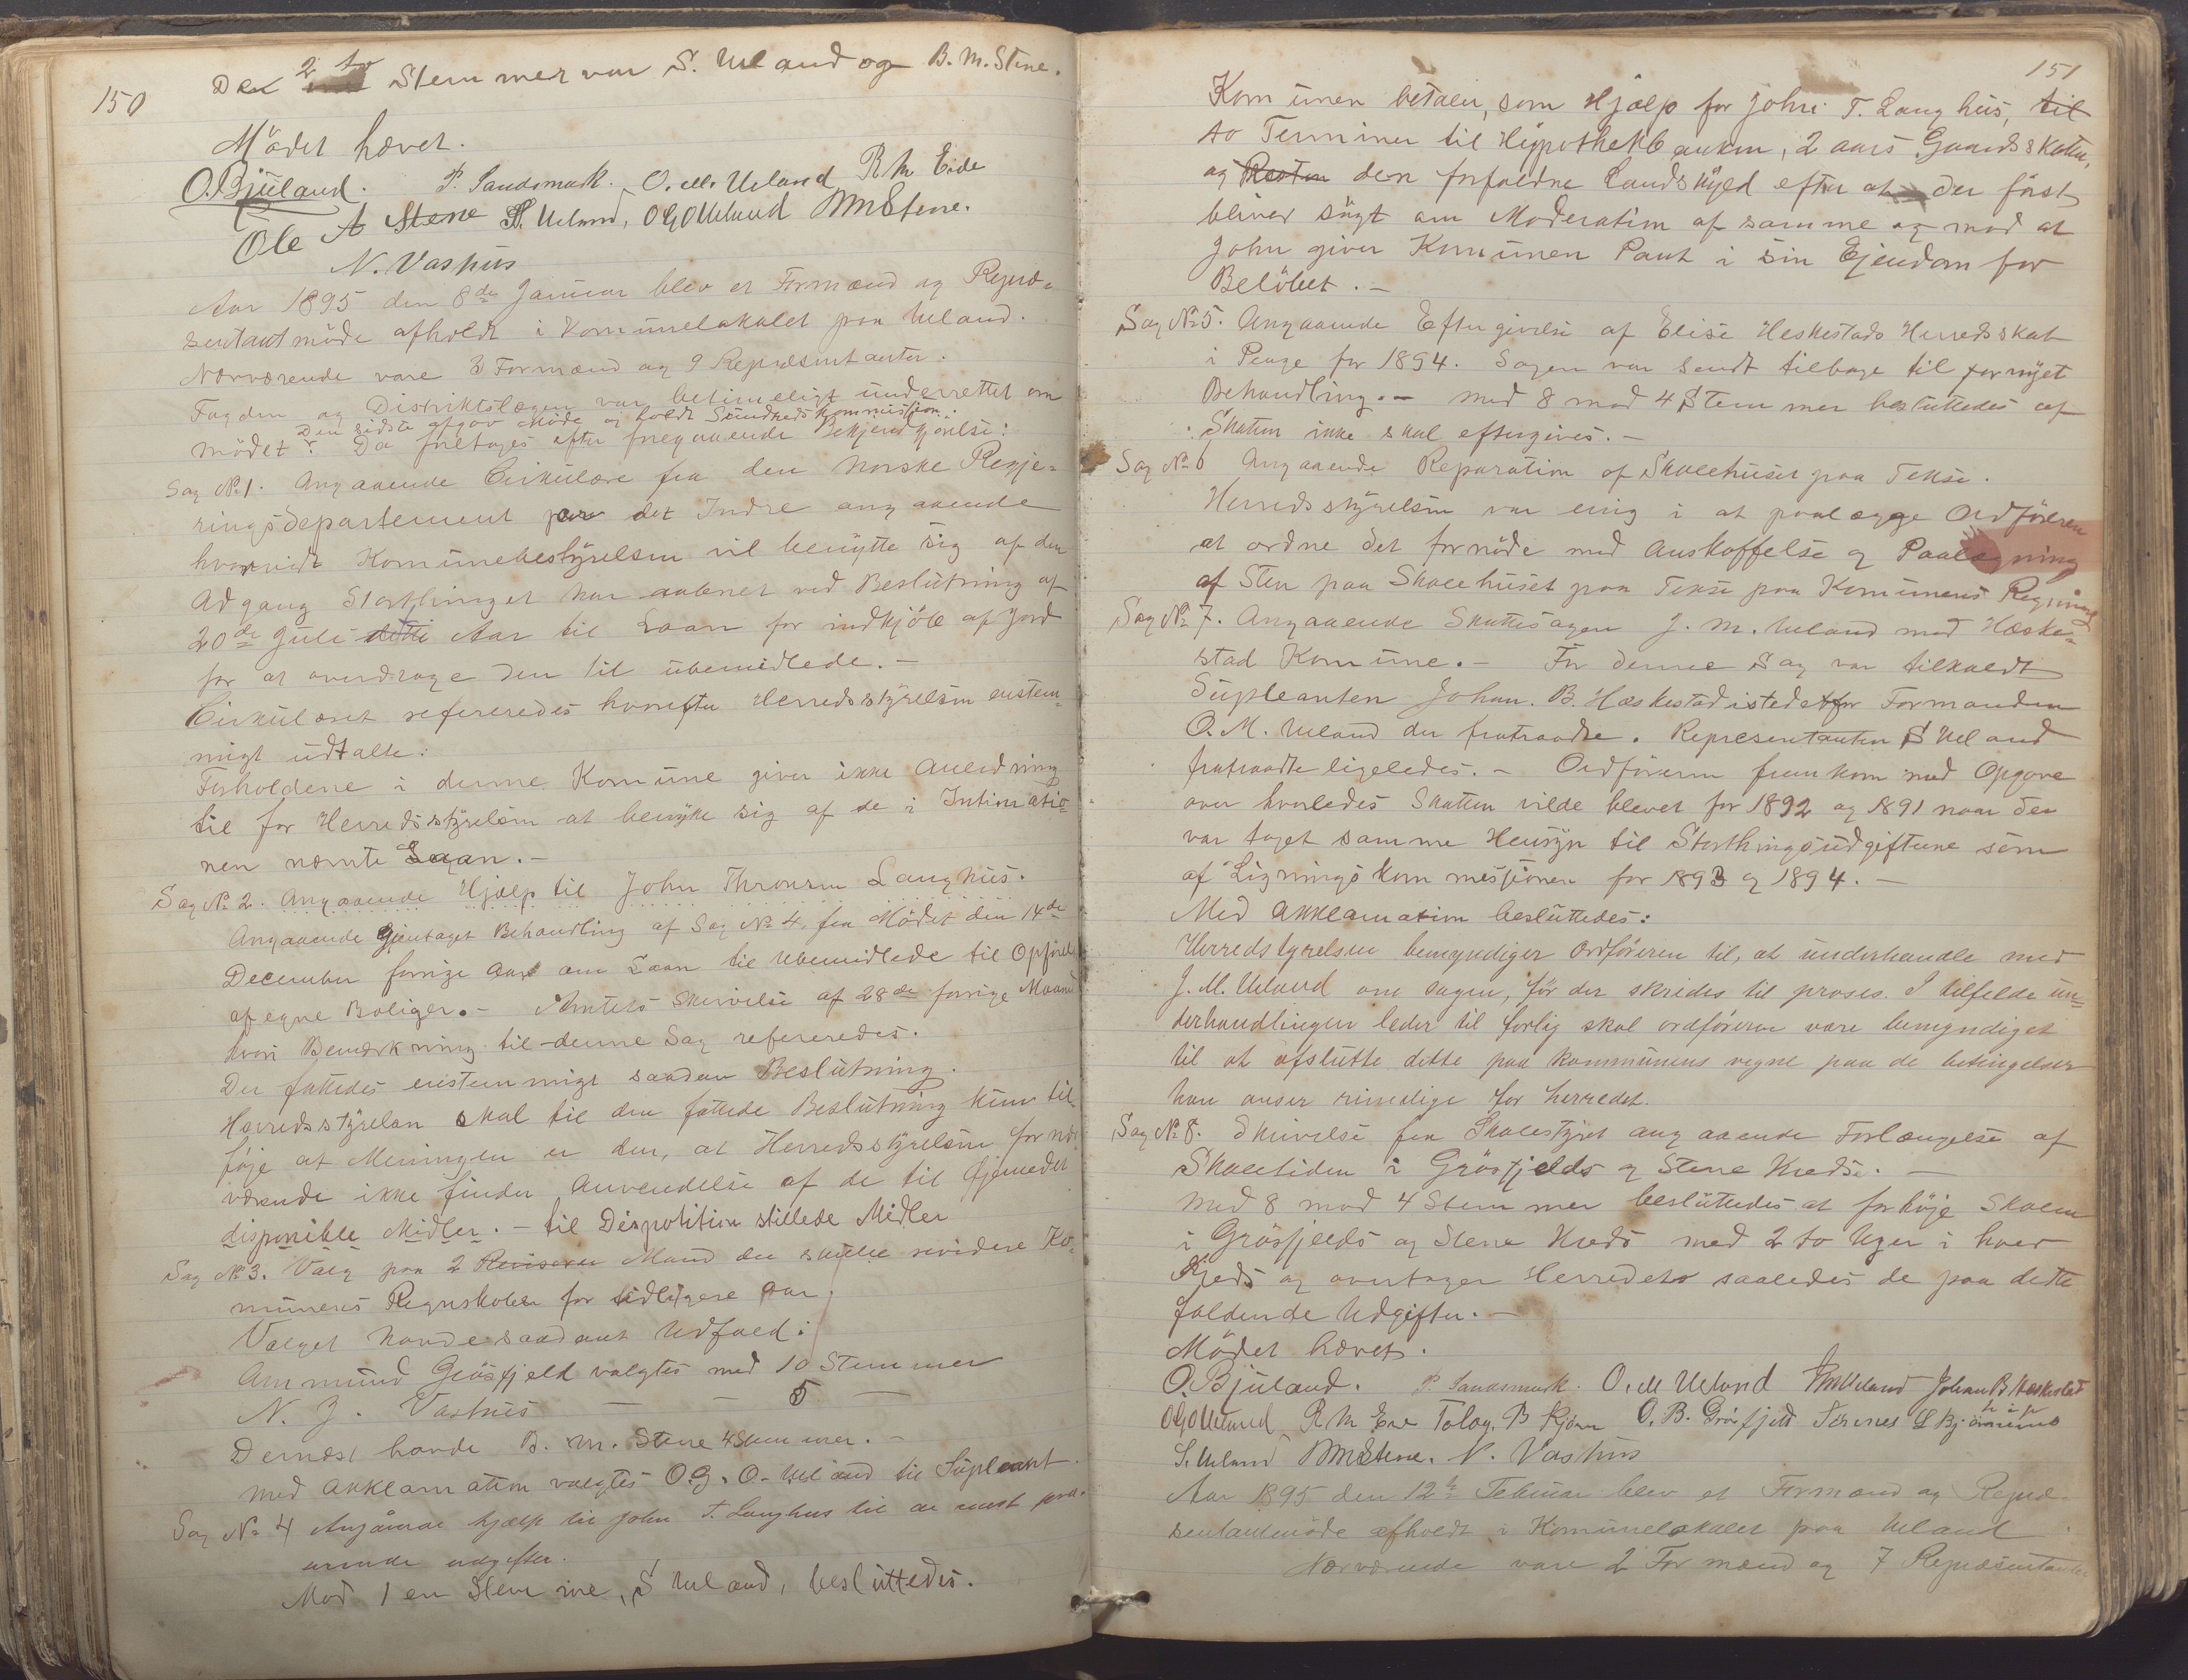 150
Den 2 to Stemmer var S. Ueland og B. M. Stene.
Mödet hævet.
O. Bjuland. P. Sandsmark. O. M. Ueland R M Eide
Ole A Stene S. Ueland, O G O Ueland BMStene.
N. Vashus
Aar 1895 den 8de Januar blev et Formænd og Repræ-
sentantmöde afholdt i Komunelokalet paa Ueland.
Nærværende vare 3 Formænd og 9 Repræsentanter.
Fogden og Distriktslægen var betimeligt underrettet om
Den sidste afgav Möde og holdt Sundhedskommission.
mödet. Da foretages efter foregaaende Bekjendtgjörelse:
Sag No 1. Angaaende Cirkulære fra den Norske Regje-
ringsdepartement for det Indre angaaende
hvorvidt Komunebestyrelsen vil benytte sig af den
Adgang Storthinget har aabnet ved Beslutning af
20de Juli dette Aar til Laan for indkjöb af Jord
for at overdrage den til ubemidlede.-
Cirkulæret refereredes hvorefter Herredsstyrelsen enstem-
migt udtalte:
Forholdene i denne Komune giver ikke Anledning
til for Herredsstyrelsen at benytte sig af de i Intimatio-
nen nævnte Laan.-
Sag No 2. Angaaende Hjælp til John Thronsen Langhus.
Angaaende Gjentaget Behandling af Sag No 4 fra Mödet den 14de
December forrige Aar om Laan til Ubemidlede til Opförelse
af egne Boliger.- Amtets Skrivelse af 28de forrige Maaned
hvori Bemærkning til denne Sag refereredes.
Der fattedes enstemmigt saadan Beslutning.
Herredsstyrelsen skal til den fattede Beslutning kun til-
föje at Meningen er den, at Herredsstyrelsen for nær-
værende ikke finder Anvendelse af de til Öjemedet
disponible Midler.- til Disposition stillede Midler
Sag No 3. Valg paa 2 Revisorer Mænd der skulle revidere Ko-
munens Regnskaber for tidligere Aar.
Valget havde saadant Udfald:
Ammund Grösfjeld valgtes med 10 Stemmer
N. J. Vashus — — 5 —
Dernæst havde B. M. Stene 4 Stemmer.-
Med Akklamation valgtes O. G. O. Ueland til Supleant.
Sag No 4 Angaaende hjælp til John T. Langhus til de mest
udgifter.
Mod 1 en Stemme, S Ueland, besluttedes.
151
Komunen betaler, som Hjælp for John T. Langhus, til
to Terminer til Hypothekbanken, 2 aars Gaardsskatter,
og Resten den forfaldne Landskyld efter at der först
bliver sögt om Moderation af samme og mod at
John giver Komunen Pant i sin Ejendom for
Belöbet.-
Sag No 5. Angaaende Eftergivelse af Elise Heskestads Herredsskat
i Penge for 1894. Sagen var sendt tilbage til fornyet
Behandling.- Med 8 mod 4 Stemmer besluttedes at
Skatten ikke skal eftergives.-
Sag No 6 Angaaende Reparation af Skolehuset paa Tekse.
Herredsstyrelsen var enig i at paalægge Ordföreren
at ordne det fornöde med Anskaffelse og Paalægning
af Sten paa Skolehuset paa Tekse paa Komunens Regning
Sag No 7. Angaaende Skattesagen J. M. Ueland mod Hæske-
stad Komune.- For denne Sag var tilkaldt
Supleanten Johan. B. Hæskestad istedetfor Formanden
O. M. Ueland der fratraadte. Representanten S Ueland
fratraadte ligeledes.- Ordföreren fremkom med Opgave
over hvorledes Skatten vilde blevet for 1892 og 1891 naar der
var taget samme Hensyn til Storthingsudgifterne som
af Ligningskommissionen for 1893 og 1894.-
Med Akklamation besluttedes:
Herredstyrelsen bemyndiger Ordföreren til, at underhandle med
J. M. Ueland om sagen, för der skrides til proses. I tilfelde un-
derhandlingen leder til forlig skal ordföreren være bemyndiget
til at afslutte dette paa kommunens vegne paa de betingelser
han anser rimelige for herredet.
Sag No 8. Skrivelse fra Skolestyret angaaende Forlængelse af
Skoletiden i Grösfjelds og Stene Kredse.-
Med 8 mod 4 Stemmer besluttedes at forhöje Skolen
i Grösfjelds og Stene Kreds med 2 to Uger i hver
Kreds og overtager Herredet saaledes de paa dette
faldende Udgifter.-
Mödet hævet.
O. Bjuland. P. Sandsmark. O. M Ueland Johan B Heskestad
O G O Ueland R M Eide Tolag. B Kjörn O. B. Grösfjeld
S. Ueland BMStene. N. Vashus
Aar 1895 den 12te Februar blev et Formænd og Repræ-
sentantmöde afholdt i Komunelokalet paa Ueland.
Nærværende vare 2 Formænd og 7 Repræsentanter